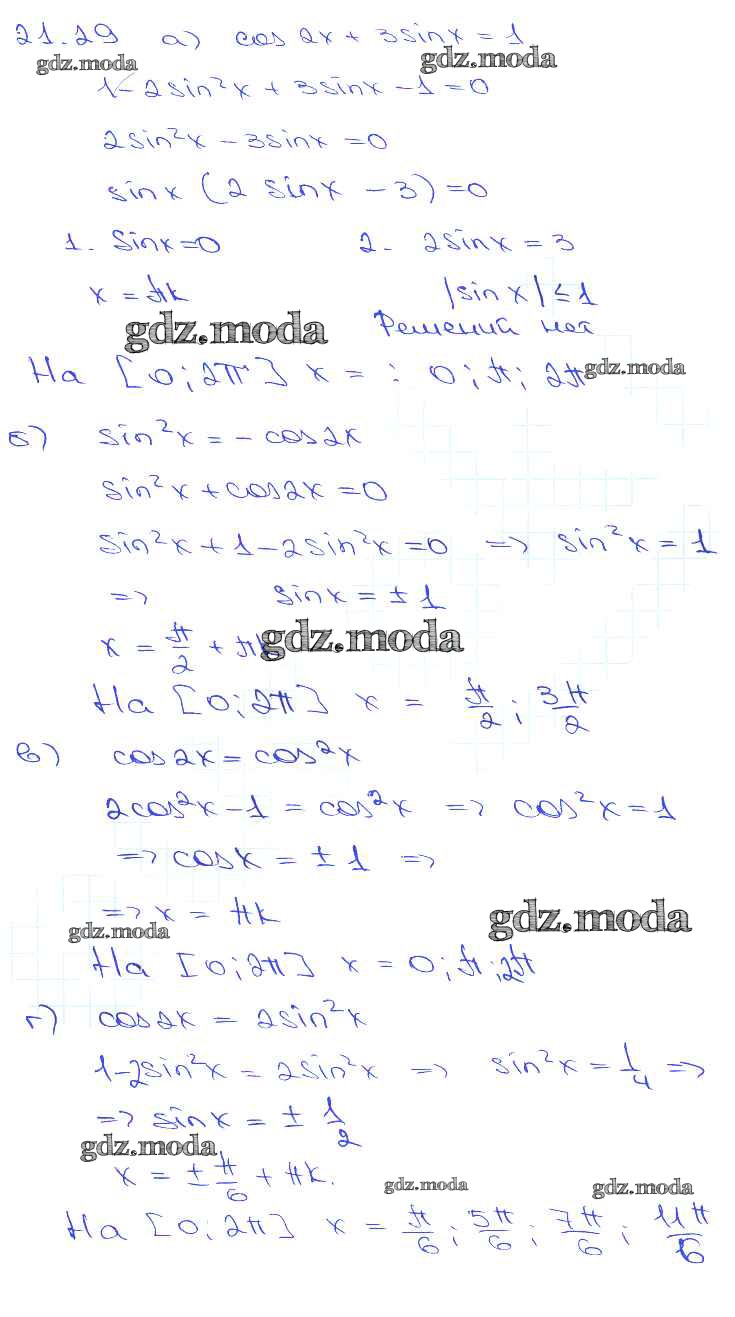 21.29 а) cos 2x + 3sinx = 1
gdz.moda gdz.moda
1 - 2sin²x + 3sinx - 1 = 0
2sin²x - 3sinx = 0
sinx (2 sinx - 3) = 0
1. Sinx = 0 2. 2sinx = 3
x = πk |sin x| ≤ 1
gdz.moda Решений нет
На [0; 2π] x = : 0; π; 2π gdz.moda
б) sin²x = - cos2x
sin²x + cos2x = 0
sin²x + 1 - 2sin²x = 0 => sin²x = 1
=> sinx = ± 1
x = π/2 + πk gdz.moda
На [0; 2π] x = π/2 ; 3π/2
в) cos2x = cos²x
2cos²x - 1 = cos²x => cos²x = 1
=> cosx = ± 1 =>
=> x = πk
gdz.moda gdz.moda
На [0; 2π] x = 0; π; 2π
г) cos2x = 2sin²x
1 - 2sin²x = 2sin²x => sin²x = 1/4 =>
=> sinx = ± 1/2
gdz.moda
x = ± π/6 + πk.
gdz.moda gdz.moda
На [0; 2π] x = π/6 ; 5π/6 ; 7π/6 ; 11π/6